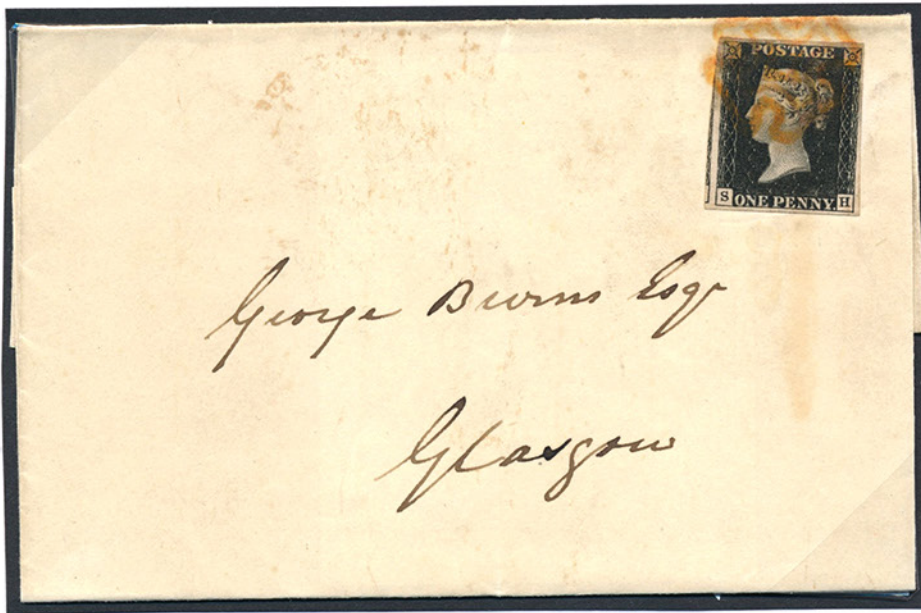 POSTAGE
S ONE PENNY. H
George Burns Esqr
Glasgow